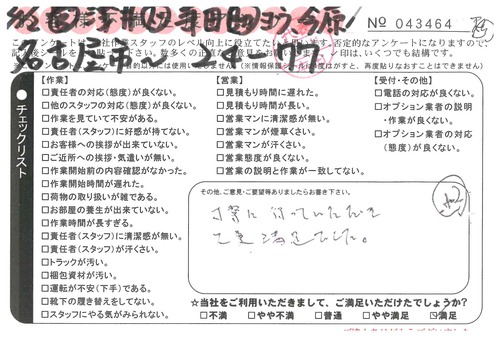 № 043464
名古屋市
チェックリスト
【作業】
□責任者の対応(態度)が良くない。
□他のスタッフの対応(態度)が良くない。
□作業を見ていて不安がある。
□責任者(スタッフ)に好感が持てない。
□お客様への挨拶が出来ていない。
□ご近所への挨拶・気遣いが無い。
□作業開始前の内容確認がなかった。
□作業開始時間が遅れた。
□荷物の取り扱いが雑である。
□お部屋の養生が出来ていない。
□作業時間が長すぎる。
□責任者(スタッフ)に清潔感が無い。
□責任者(スタッフ)が汗くさい。
□トラックが汚い。
□梱包資材が汚い。
□運転が不安(下手)である。
□靴下の履き替えをしてない。
□スタッフにやる気がみられない。
【営業】
□見積もり時間に遅れた。
□見積もり時間が長い。
□営業マンに清潔感が無い。
□営業マンが煙草くさい。
□営業マンが汗くさい。
□営業態度が良くない。
□営業の説明と作業が一致してない。
【受付・その他】
□電話の対応が良くない。
□オプション業者の説明
・作業が良くない。
□オプション業者の対応
(態度)が良くない。
その他、ご意見・ご要望等ありましたらお書き下さい。
丁寧に行っていただき
大変満足でした。
☆当社をご利用いただきまして、ご満足いただけたでしょうか?
□不満 □やや不満 □普通 □やや満足 ☑満足